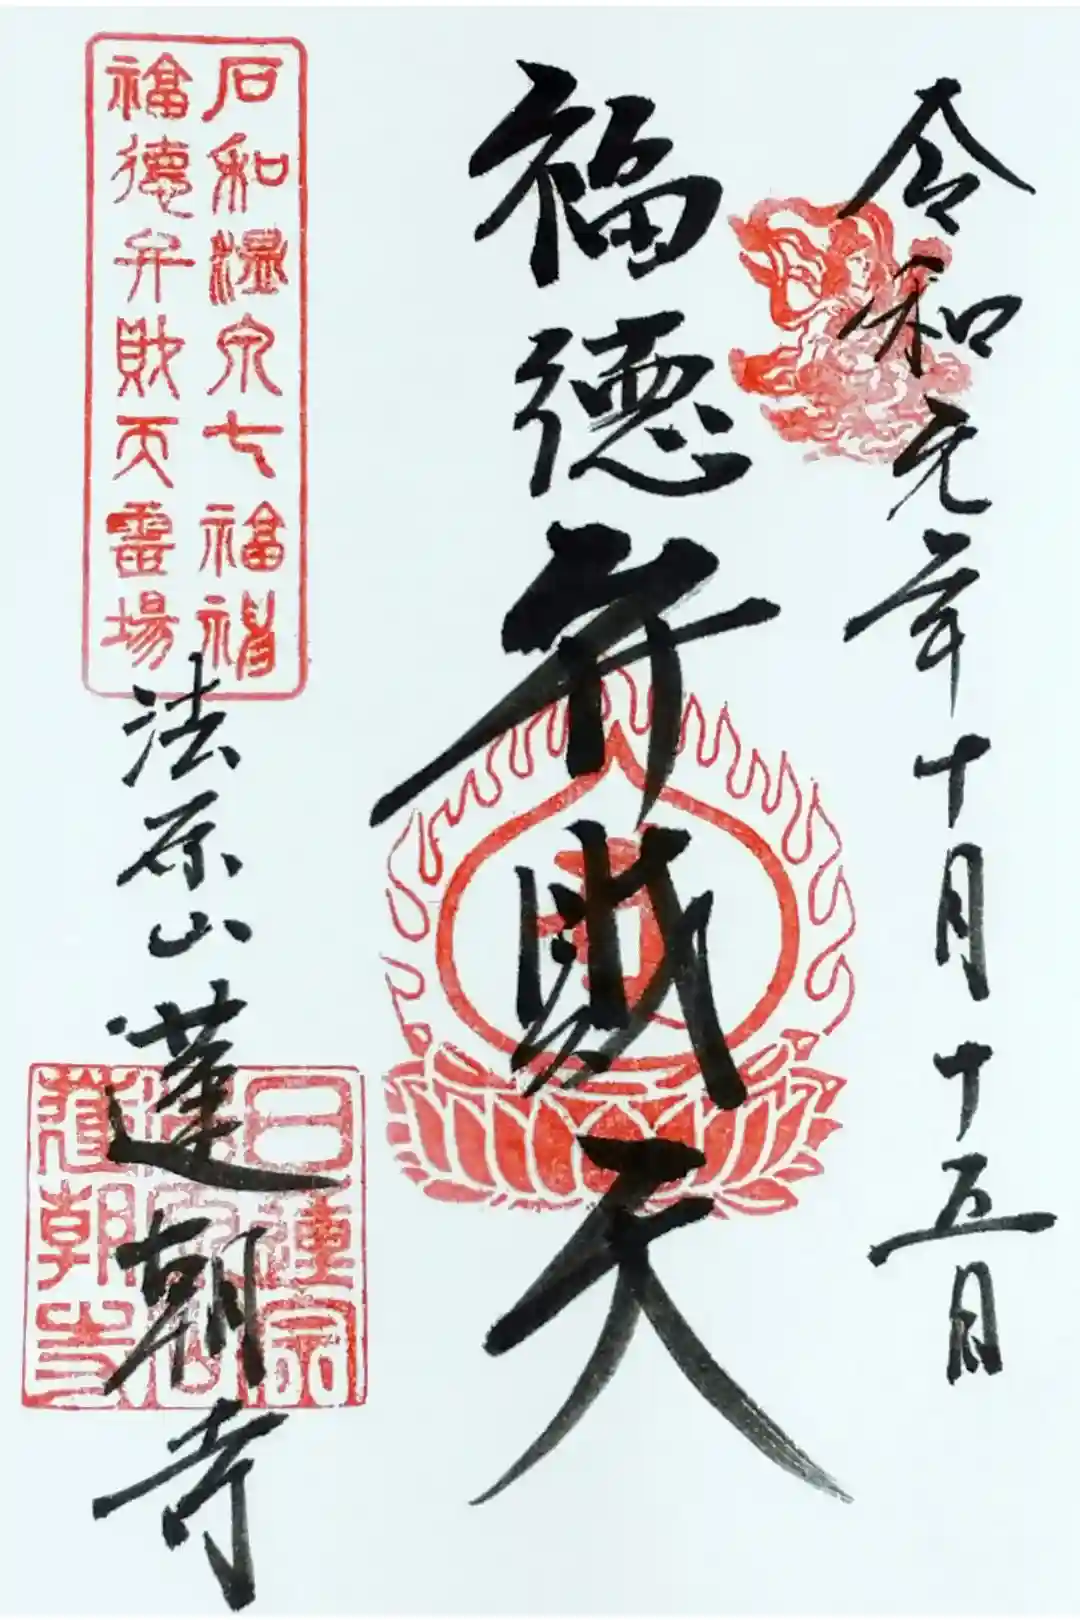 令和元年十月十五日
福德弁財天
石和温泉七福神
福徳弁財天霊場
法原山蓮朝寺
日蓮宗
蓮朝寺